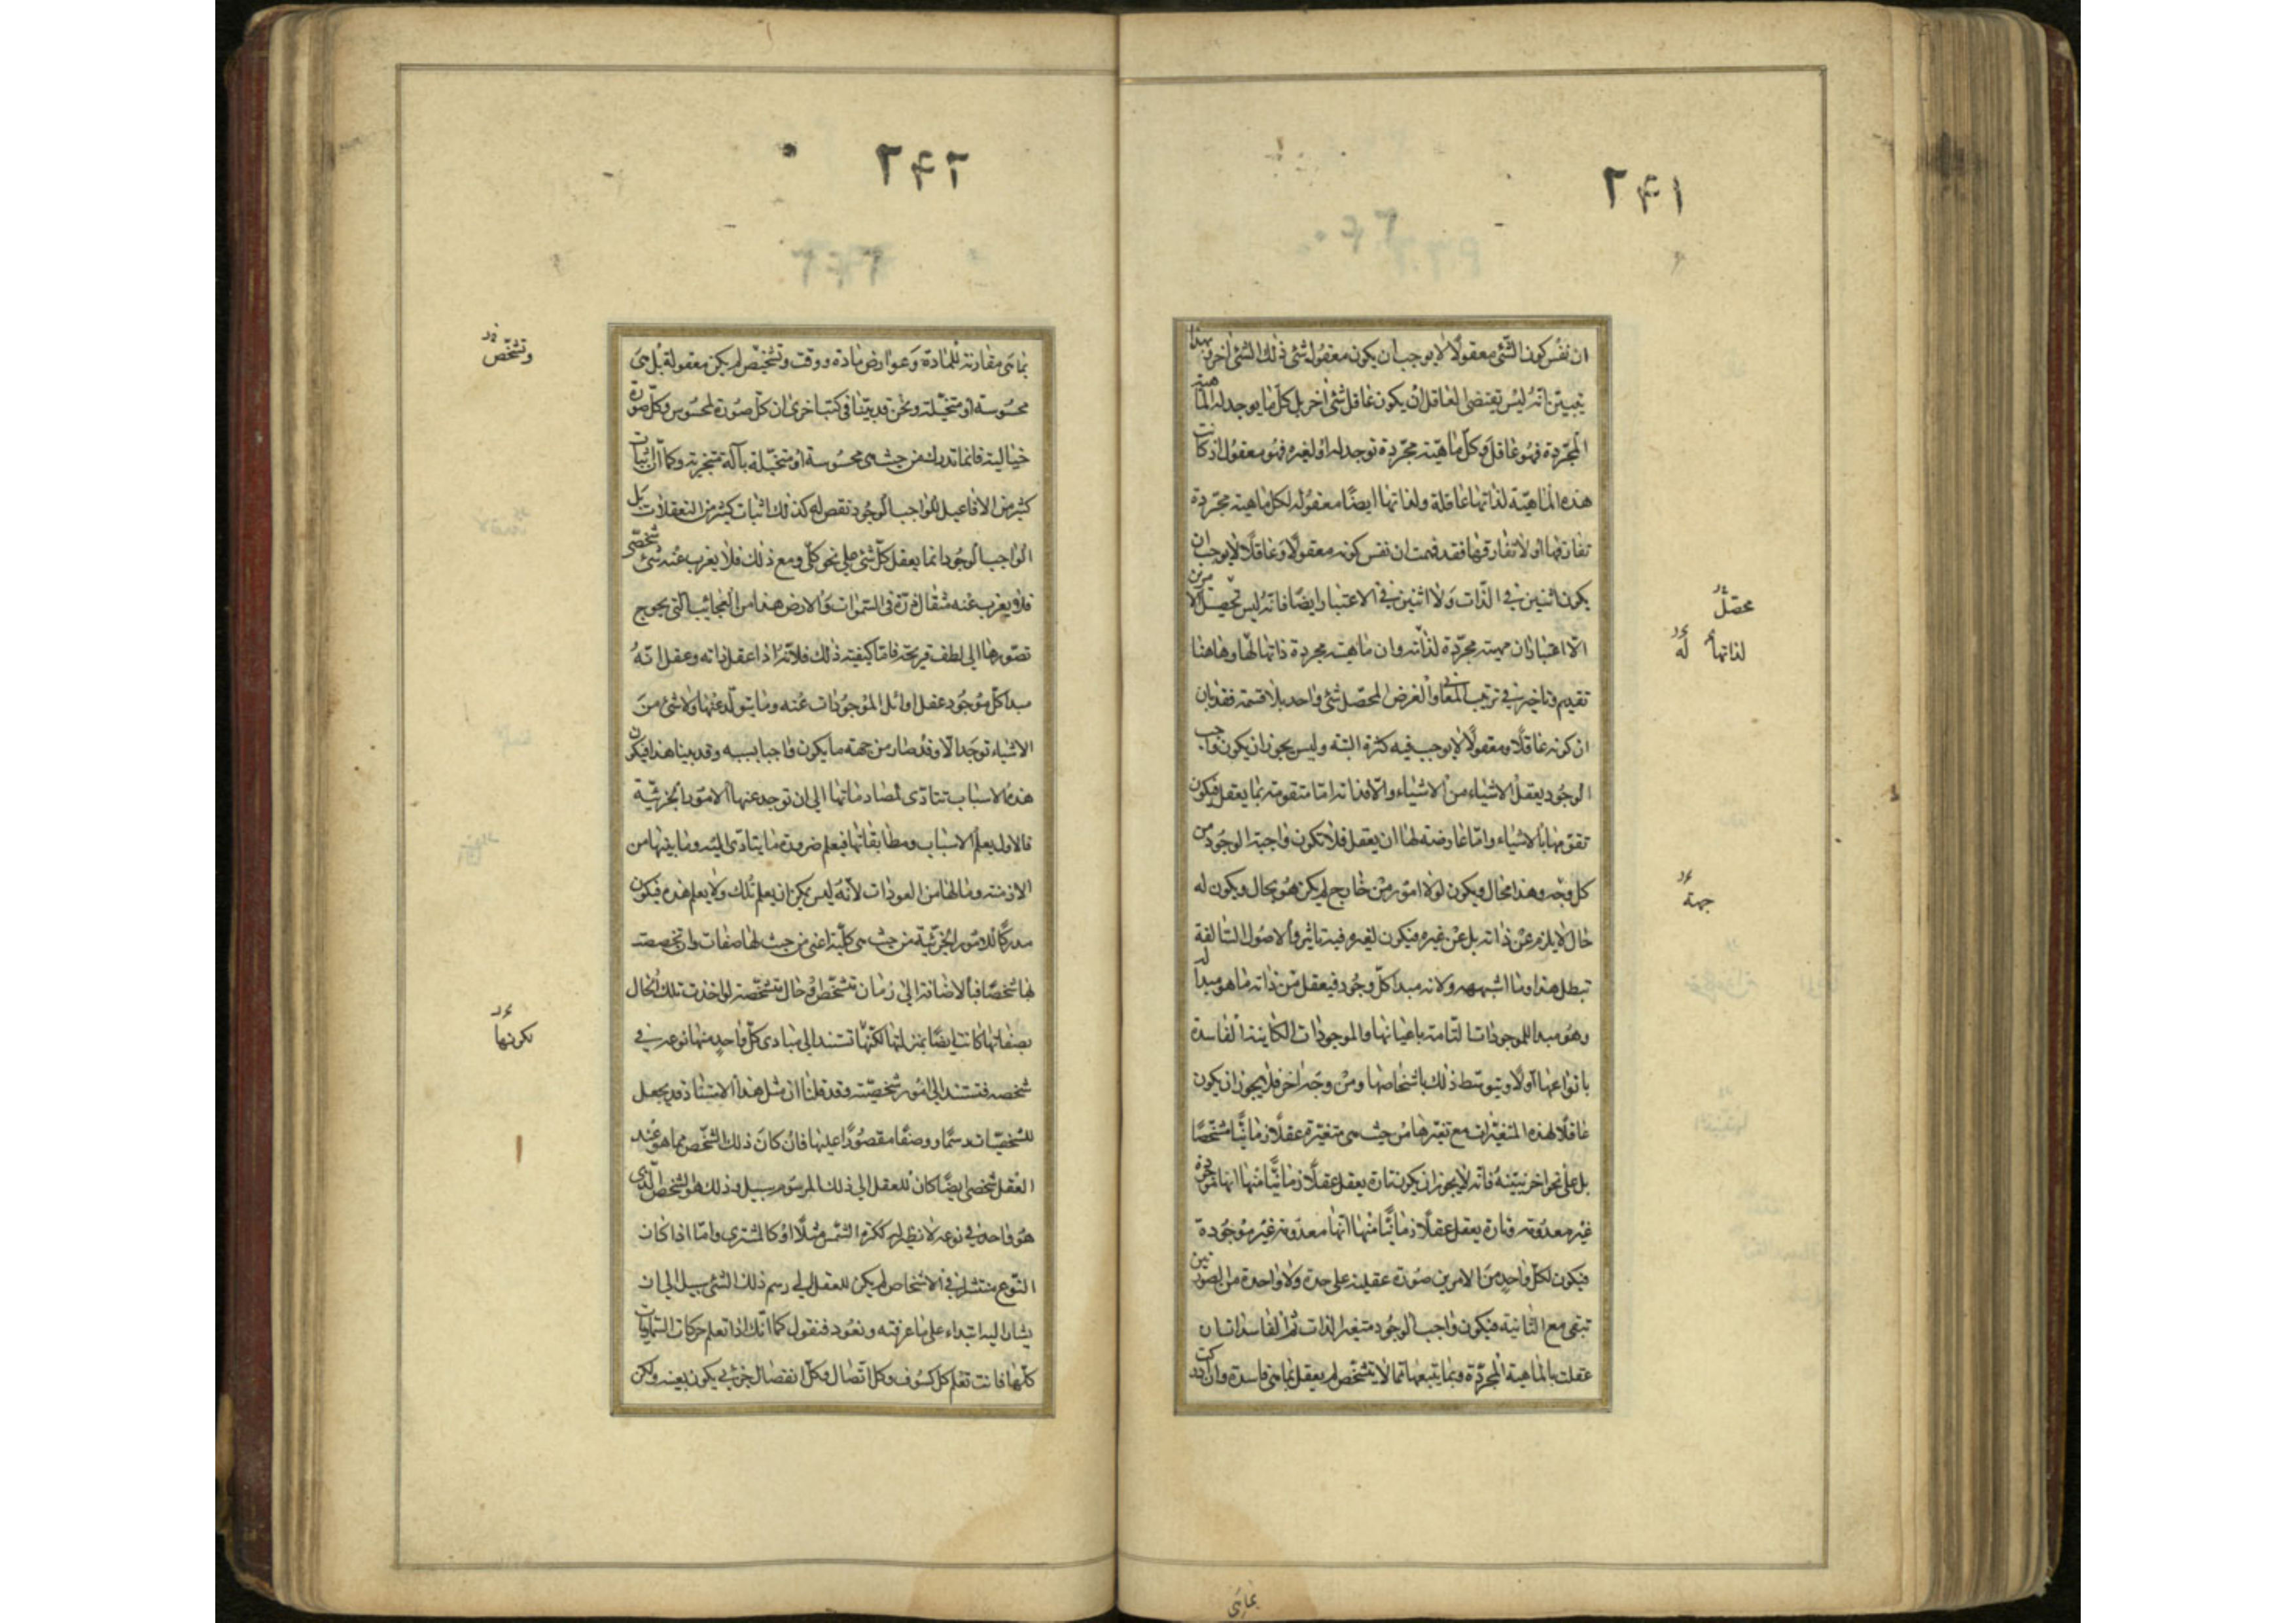 ۲۴۱
ان نفس كون الشئ معقولا لا يوجب ان يكون معقول شئ ذلك الشئ اخر بهذا
يتبين انه ليس يقتضى العاقل ان يكون عاقل شئ اخر بل كل ما يوجد له الماهية
المجردة فهو عاقل وكل ماهية مجردة توجد له او لغيره فهو معقول اذ كانت
هذه الماهية لذاتها عاقلة ولذاتها ايضا معقوله لكل ماهية مجردة
تفارقها او لا تفارقها فقد فهمت ان نفس كونه معقولا وعاقلا لا يوجب ان
يكون اثنين فى الذات ولا اثنين فى الاعتبار ايضا فانه ليس تحصيل الامرين
الا اعتبار ان مهية مجردة لذاته وان ماهية مجردة ذاتها لها وهاهنا
تقديم وتاخير فى ترتيب المعانى والغرض المحصل شئ واحد بلا قسمة فقد بان
ان كونه عاقلا ومعقولا لا يوجب فيه كثرة البتة وليس يجوز ان يكون واجب
الوجود يعقل الاشياء من الاشياء والا فذاته اما متقومة بما يعقل فيكون
تقومها بالاشياء واما عارضة لها ان يعقل فلا تكون واجبة الوجود من
كل وجه وهذا محال ويكون لولا امور من خارج لم يكن هو بحال ويكون له
حال لا يلزم عن ذاته بل عن غيره فيكون لغيره فيه تاثير والاصول السالفة
تبطل هذا وما اشبهه ولانه مبدا كل وجود فيعقل من ذاته ما هو مبدأ له
وهو مبدا للموجودات التامة باعيانها والموجودات الكاينة الفاسدة
بانواعها اولا ويتوسط ذلك باشخاصها ومن وجه اخر فلا يجوز ان يكون
عاقلا لهذه المتغيرات مع تغيرها من حيث هى متغيرة عقلا زمانيا مشخصا
بل على نحو اخر نبينه فانه لا يجوز ان يكون تارة يعقل عقلا زمانيا منها انها موجودة
غير معدومة وتارة يعقل عقلا زمانيا منها انها معدومة غير موجودة
فيكون لكل واحد من الامرين صورة عقلية على حدة ولا واحدة من الصورتين
تبقى مع الثانية فيكون واجب الوجود متغير الذات ثم الفاسدات ان
عقلت بالماهية المجردة وبما يتبعها مما لا يتشخص لم يعقل بما هى فاسدة وان ادركت
محصل
لذاتها له
جهة
بما هى
۲۴۲
بما هى مقارنة للمادة وعوارض مادة ووقت وتشخيص لم يكن معقولة بل هى
محسوسة او متخيلة ونحن قد بينا فى كتب اخرى ان كل صورة لمحسوس وكل صورة
خيالية فانما تدرك من حيث هى محسوسة او متخيلة بآلة متجزية وكما ان اثبات
كثير من الافاعيل للواجب الوجود نقص له كذلك اثبات كثير من التعقلات بل
الواجب الوجود انما يعقل كل شئ على نحو كلى ومع ذلك فلا يعزب عنه شئ شخصى
فلا يعزب عنه مثقال ذرة فى السموات والارض هذا من العجائب التى يحوج
تصورها الى لطف قريحة فاما كيفية ذلك فلانه اذا عقل ذاته وعقل انه
مبدا كل موجود عقل اوائل الموجودات عنه وما يتولد عنها ولا شئ من
الاشياء توجد الا وقد صار من جهة ما يكون واجبا بسببه وقد بينا هذا فيكون
هذه الاسباب تتادى لمصادماتها الى ان توجد عنها الامور الجزئية
فالاول يعلم الاسباب ومطابقاتها فيعلم ضرورة ما يتادى اليه وما بينها من
الازمنة وما لها من العودات لانه ليس يمكن ان يعلم تلك ولا يعلم هذه فيكون
مدركا للامور الجزئية من حيث هى كلية اعنى من حيث لها صفات وان تخصصت
لها شخصا فبالاضافة الى زمان تشخص او حال متشخصة لو اخذت تلك الحال
بصفاتها كانت ايضا بمنزلتها لكنها تستند الى مبادى كل واحد منها نوعه فى
شخصه فتستند الى امور شخصية وقد قلنا ان مثل هذا الاستناد قد يجعل
للشخصيات رسما ووصفا مقصورا عليها فان كان ذلك الشخص مما هو عند
العقل شخصى ايضا كان للعقل الى ذلك المرسوم سبيل وذلك هو الشخص الذى
هو واحد فى نوعه لا نظير له ككرة الشمس مثلا او كالمشترى واما اذا كان
النوع منتشرا فى الاشخاص لم يكن للعقل الى رسم ذلك الشئ سبيل الى ان
يشار اليه ابتداء على ما عرفته ونعود فنقول كما انك اذا تعلم حركات السماويات
كلها فانت تعلم كل كسوف وكل اتصال وكل انفصال جزئى يكون بعينه ولكن
وتشخص